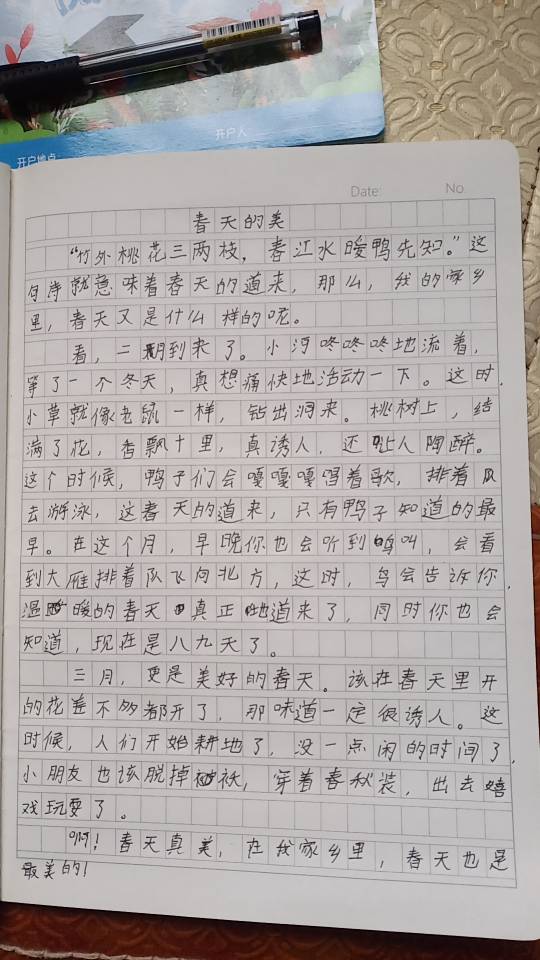 开户地点
开户人
Date:
No.
春天的美
“竹外桃花三两枝，春江水暖鸭先知。”这
句诗就意味着春天的道来，那么，我的家乡
里，春天又是什么样的呢。
看，二月到来了。小河咚咚咚地流着，
等了一个冬天，真想痛快地活动一下。这时，
小草就像老鼠一样，钻出洞来。桃树上，结
满了花，香飘十里，真诱人，还让人陶醉。
这个时候，鸭子们会嘎嘎嘎唱着歌，排着队
去游泳，这春天的道来，只有鸭子知道的最
早。在这个月，早晚你也会听到鸣叫，会看
到大雁排着队飞向北方，这时，鸟会告诉你，
温暖的春天真正地道来了，同时你也会
知道，现在是八九天了。
三月，更是美好的春天。该在春天里开
的花差不多都开了，那味道一定很诱人。这
时候，人们开始耕地了，没一点闲的时间了，
小朋友也该脱掉袄，穿着春秋装，出去嬉
戏玩耍了。
啊！春天真美，在我家乡里，春天也是
最美的！